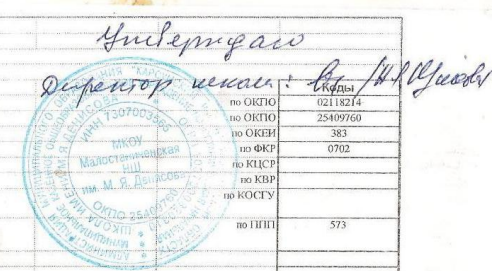 Утверждаю
Директор школы:
Коды
по ОКПО 02118214
по ОКПО 25409760
по ОКЕИ 383
по ФКР 0702
по КЦСР
по КВР
по КОСГУ
по ППП 573
ИНН 7307003565
МКОУ
Малостаниковская
НШ
им. М. Я. Денисова
ОКПО 25409760